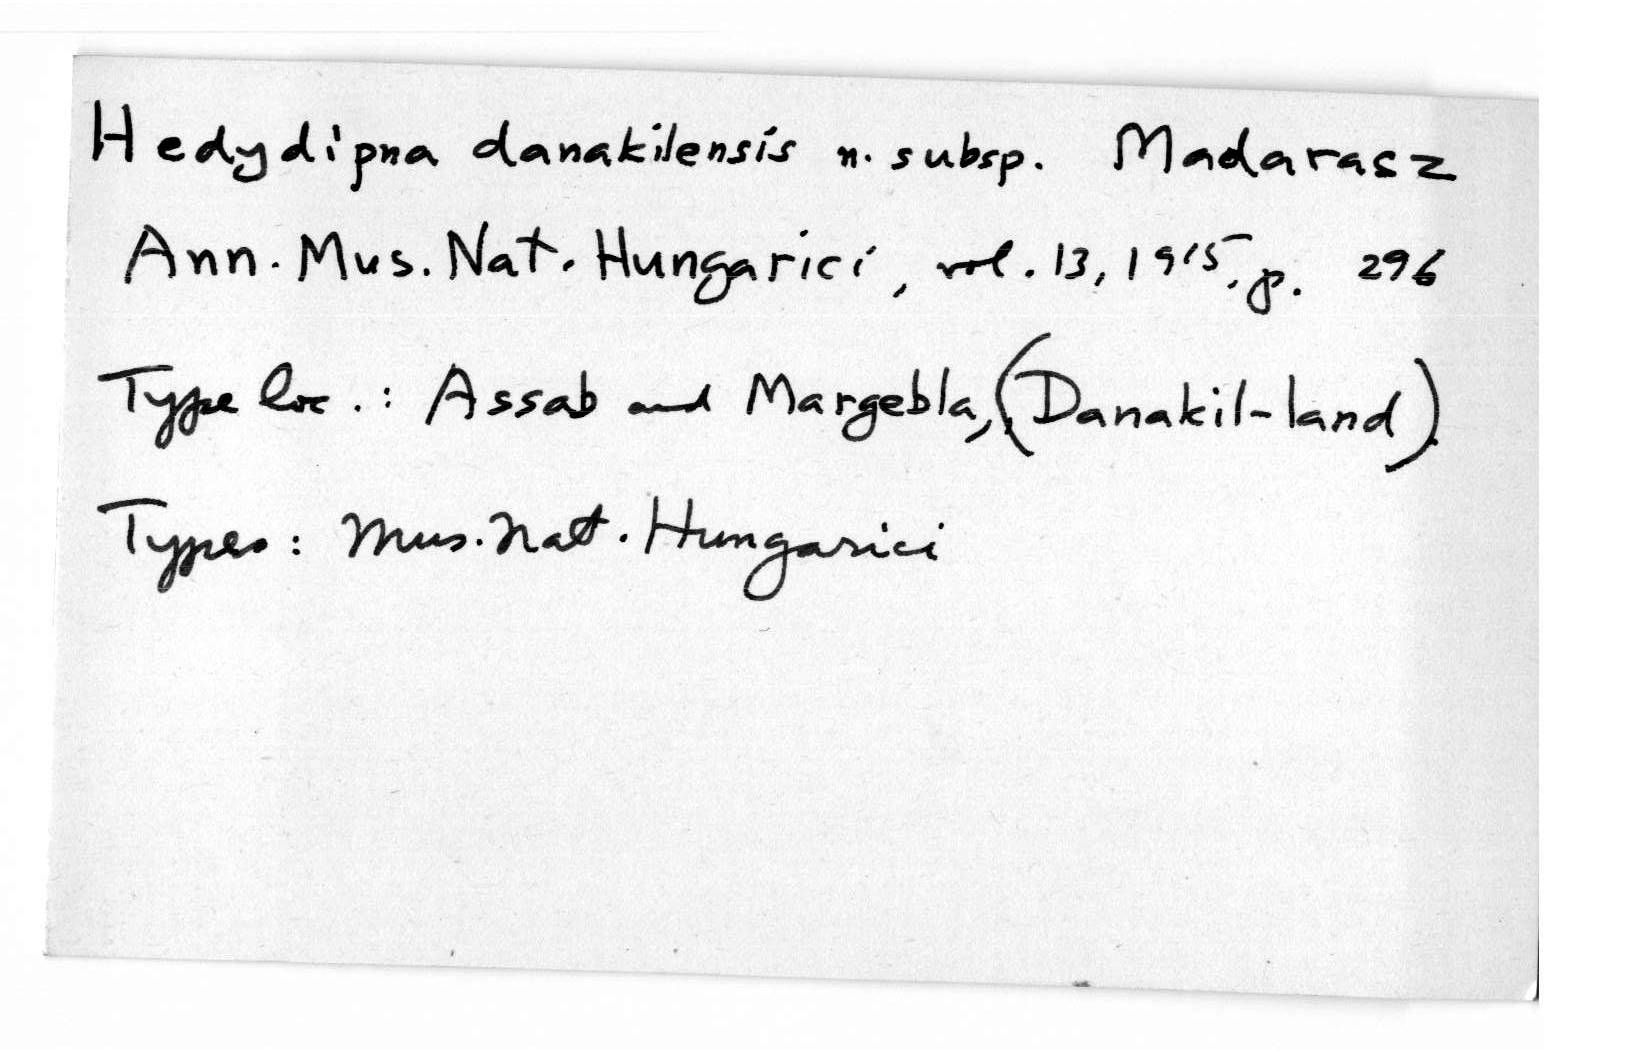 Hedydipna danakilensis n. subsp. Madarasz
Ann. Mus. Nat. Hungarici, vol. 13, 1915, p. 296
Type loc.: Assab and Margebla, (Danakil-land).
Types: Mus. Nat. Hungarici